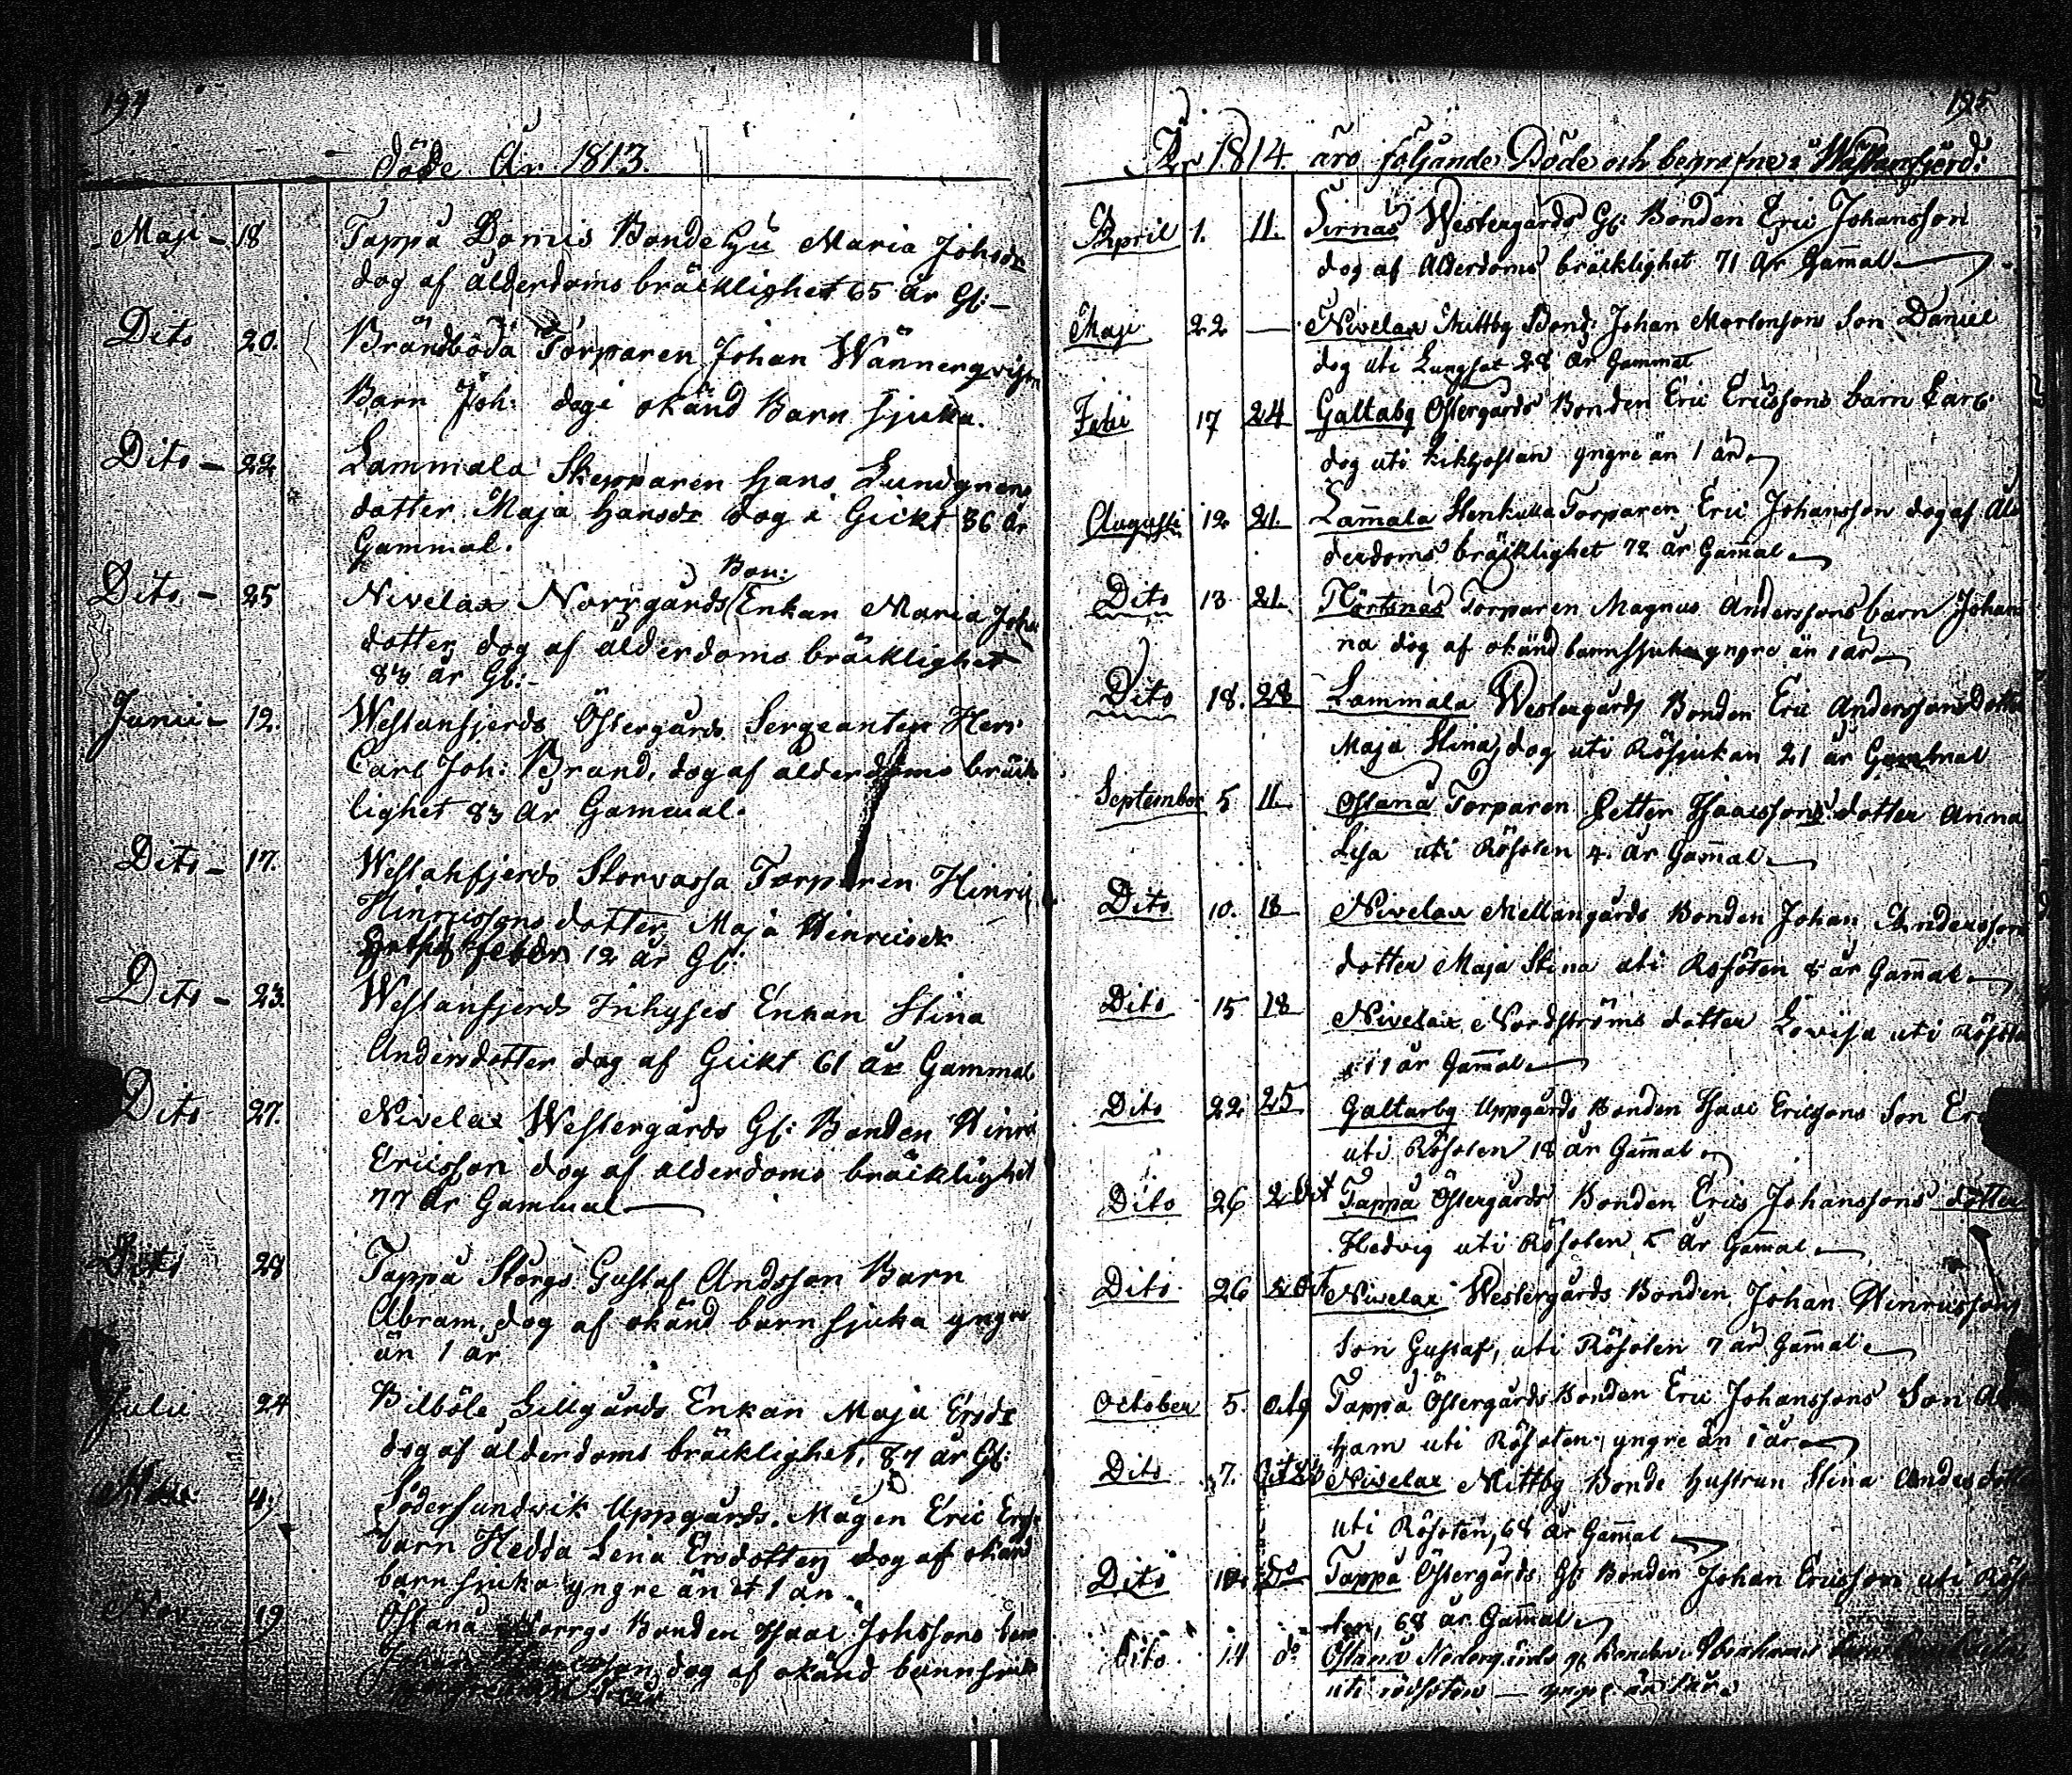 194
Döde År 1813.
Maji - 18 Tappå Bonis Bonde Hu Maria Johsdr
dog af ålderdoms bräcklighet 65 år Gl:
Dito 20. Brändböda Torparen Johan Wännerqvists
Barn Joh: dog i okänd Barn sjuka.
Dito - 22 Lammala Skepparen Hans Lundgrens
dotter Maja Hansdr dog i Gickt 36 år
Gammal.
Dito - 25 Nivelax Norrgårds Bon: Enkan Maria Joha
dotter, dog af ålderdoms bräcklighet
83 år Gl:
Junii - 12. Westanfjerds Östergårds Sergeanten Herr
Carl Joh: Brand, dog af ålderdoms bräck
lighet 83 år Gammal.
Dito - 17. Westanfjerds Storvassa Torparen Hinric
Hinricssons dotter Maja Hinricsdr
feber 12 år Gl:
Dito - 23. Westanfjerds Inhyses Enkan Stina
Andersdotter dog af Gickt 61 år Gammal
Dito 27. Nivelax Westergårds Gl: Bonden Hinric
Ericsson dog af ålderdoms bräcklighet
77 år Gammal
Dito 28 Tappå Storgs Gustaf Andsson Barn
Abram, dog af okänd barn sjuka yngre
än 1 år
Julii 24 Bilböle Lillgårds Enkan Maja Ersdr
dog af ålderdoms bräcklighet, 87 år Gl:
4 Södersundvik Uppgårds Mågen Eric Ers
barn Hedda Lena Ersdotter, dog af okänd
barnsjuka yngre än et 1 år
Nov 19 Östanå Norrgs Bonden Isaac Johssons barn
dog af okänd barnsjuka
195
År 1814 äro följande Döde och begrafne i Westanfjerd:
April 1. 11. Sirnäs Westergårds Gl: Bonden Eric Johansson
dog af Ålderdoms bräcklighet 71 år Gammal
Maji 22 — Nivelax Mittby Bond: Johan Mortensons Son Daniel
dog uti Lungsot 28 år Gammal
Julii 17 24 Galtaby Östergårds Bonden Eric Ericssons barn Carl
dog uti kikhostan yngre än 1 år
Augusti 12 21 Lam̄ala Stenkulla Torparen Eric Johansson dog af Ål
derdoms bräcklighet 72 år Gam̄al
Dito 13 21. Torparen Magnus Anderssons barn Johan
na dog af okänd barnsjuka yngre än 1 år
Dito 18. 28 Lammala Westergårds Bonden Eric Anderssons Dotter
Maja Stina, dog uti Rösjukan 21 år Gammal
September 5 11 Östanå Torparen Petter Isaacssons dotter Anna
Lisa uti Rösoten 4. år Gam̄al
Dito 10. 18 Nivelax Mellangårds Bonden Johan Anderssons
dotter Maja Stina uti Rösoten 8 år Gam̄al
Dito 15 18 Nivelax Nordströms dotter Lovisa uti Rösoten
11 år Gam̄al
Dito 22 25 Galtarby Uppgårds Bonden Isaac Ericssons Son Er
uti Rösoten 18 år Gam̄al
Dito 26 2 Oct Tappå Östergårds Bonden Erics Johanssons dotter
Hedvig uti Rösoten 5 år Gam̄al
Dito 26 2 Oct Nivelax Westergårds Bonden Johan Hinricssons
Son Gustaf, uti Rösoten 7 år Gam̄al
October 5. Oct 9 Tappå Östergårds Bonden Eric Johanssons Son Abra
ham uti Rösoten yngre än 1 år
Dito 7. Nivelax Mittby Bonde Hustrun Stina Andersdott
uti Rösoten, 68 år Gam̄al
Dito 10 do Tappå Östergårds Gl: Bonden Johan Ericsson uti Röso
ten, 68 år Gam̄al
Dito 14 do Östanå Nedergårds
uti rödsoten — yngre än 1 år